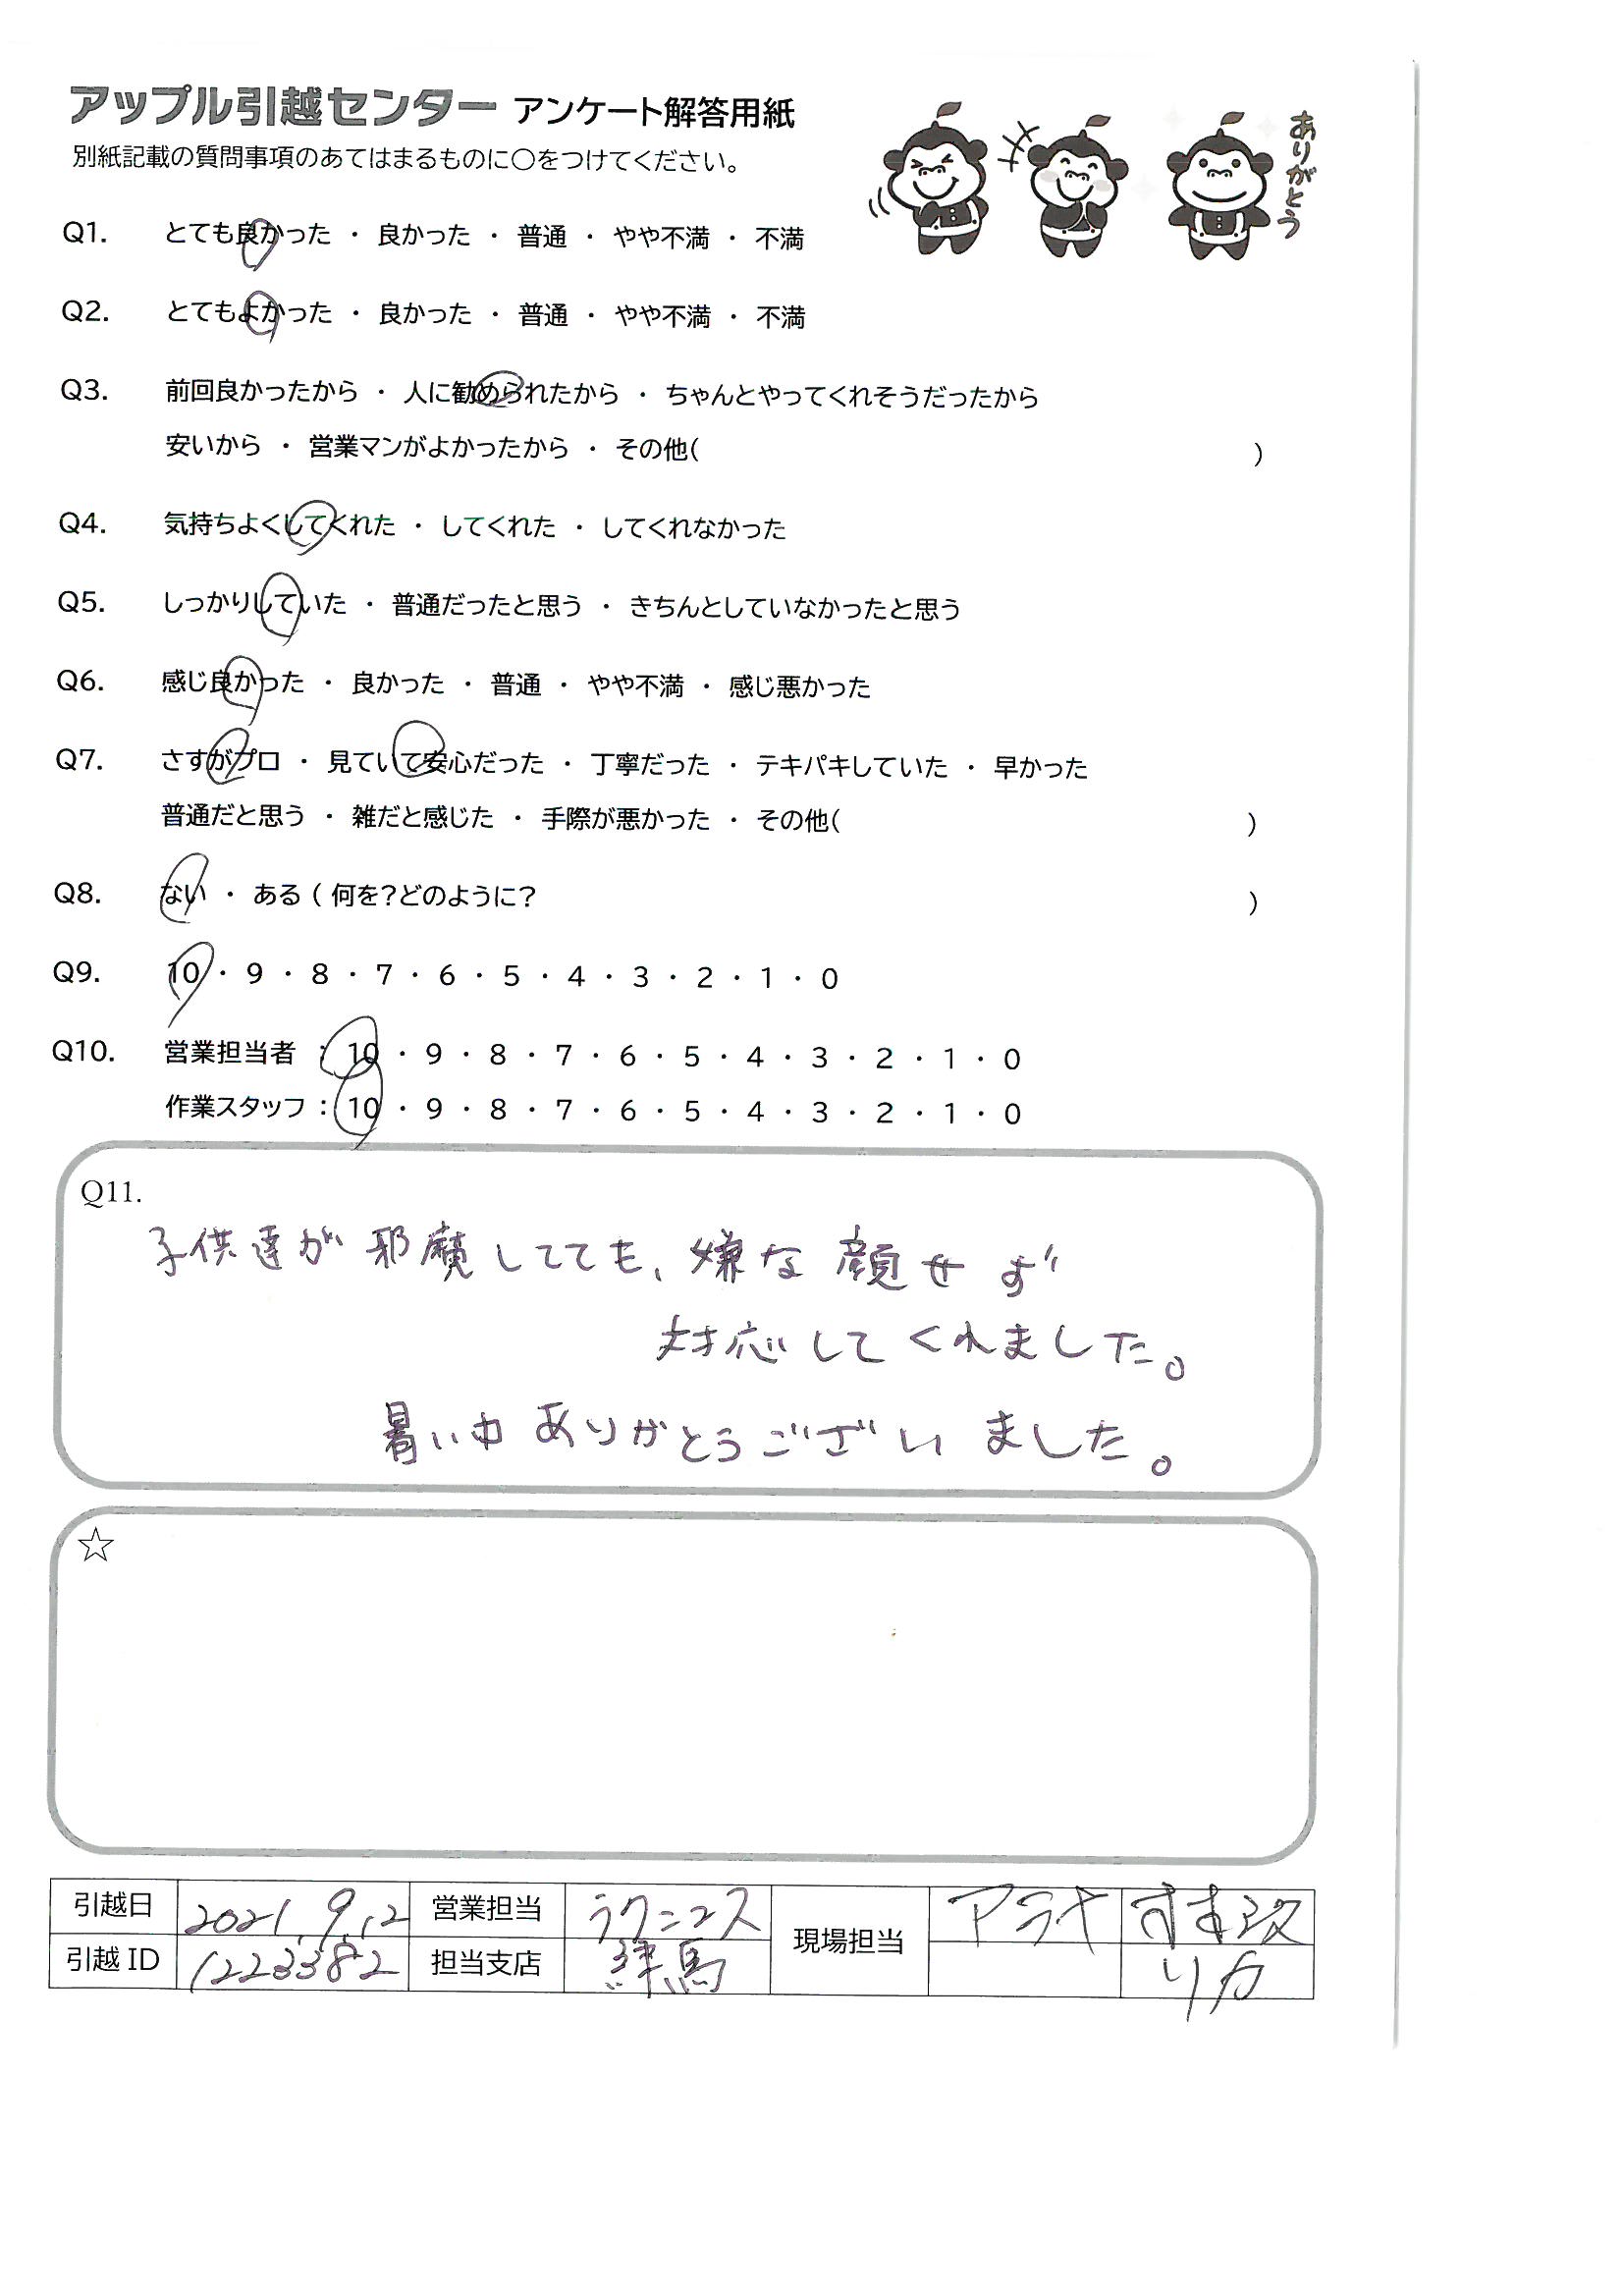 アップル引越センター アンケート解答用紙
ありがとう
別紙記載の質問事項のあてはまるものに○をつけてください。
Q1. とても良かった ・ 良かった ・ 普通 ・ やや不満 ・ 不満
Q2. とてもよかった ・ 良かった ・ 普通 ・ やや不満 ・ 不満
Q3. 前回良かったから ・ 人に勧められたから ・ ちゃんとやってくれそうだったから
安いから ・ 営業マンがよかったから ・ その他( )
Q4. 気持ちよくしてくれた ・ してくれた ・ してくれなかった
Q5. しっかりしていた ・ 普通だったと思う ・ きちんとしていなかったと思う
Q6. 感じ良かった ・ 良かった ・ 普通 ・ やや不満 ・ 感じ悪かった
Q7. さすがプロ ・ 見ていて安心だった ・ 丁寧だった ・ テキパキしていた ・ 早かった
普通だと思う ・ 雑だと感じた ・ 手際が悪かった ・ その他( )
Q8. ない ・ ある ( 何を?どのように? )
Q9. 10 ・ 9 ・ 8 ・ 7 ・ 6 ・ 5 ・ 4 ・ 3 ・ 2 ・ 1 ・ 0
Q10. 営業担当者 : 10 ・ 9 ・ 8 ・ 7 ・ 6 ・ 5 ・ 4 ・ 3 ・ 2 ・ 1 ・ 0
作業スタッフ : 10 ・ 9 ・ 8 ・ 7 ・ 6 ・ 5 ・ 4 ・ 3 ・ 2 ・ 1 ・ 0
Q11.
子供達が邪魔してても、嫌な顔せず
対応してくれました。
暑い中ありがとうございました。
☆
引越日 2021.9.12 営業担当 ラクニコス 現場担当 アラヤ
引越 ID 1223382 担当支店 練馬 リカ